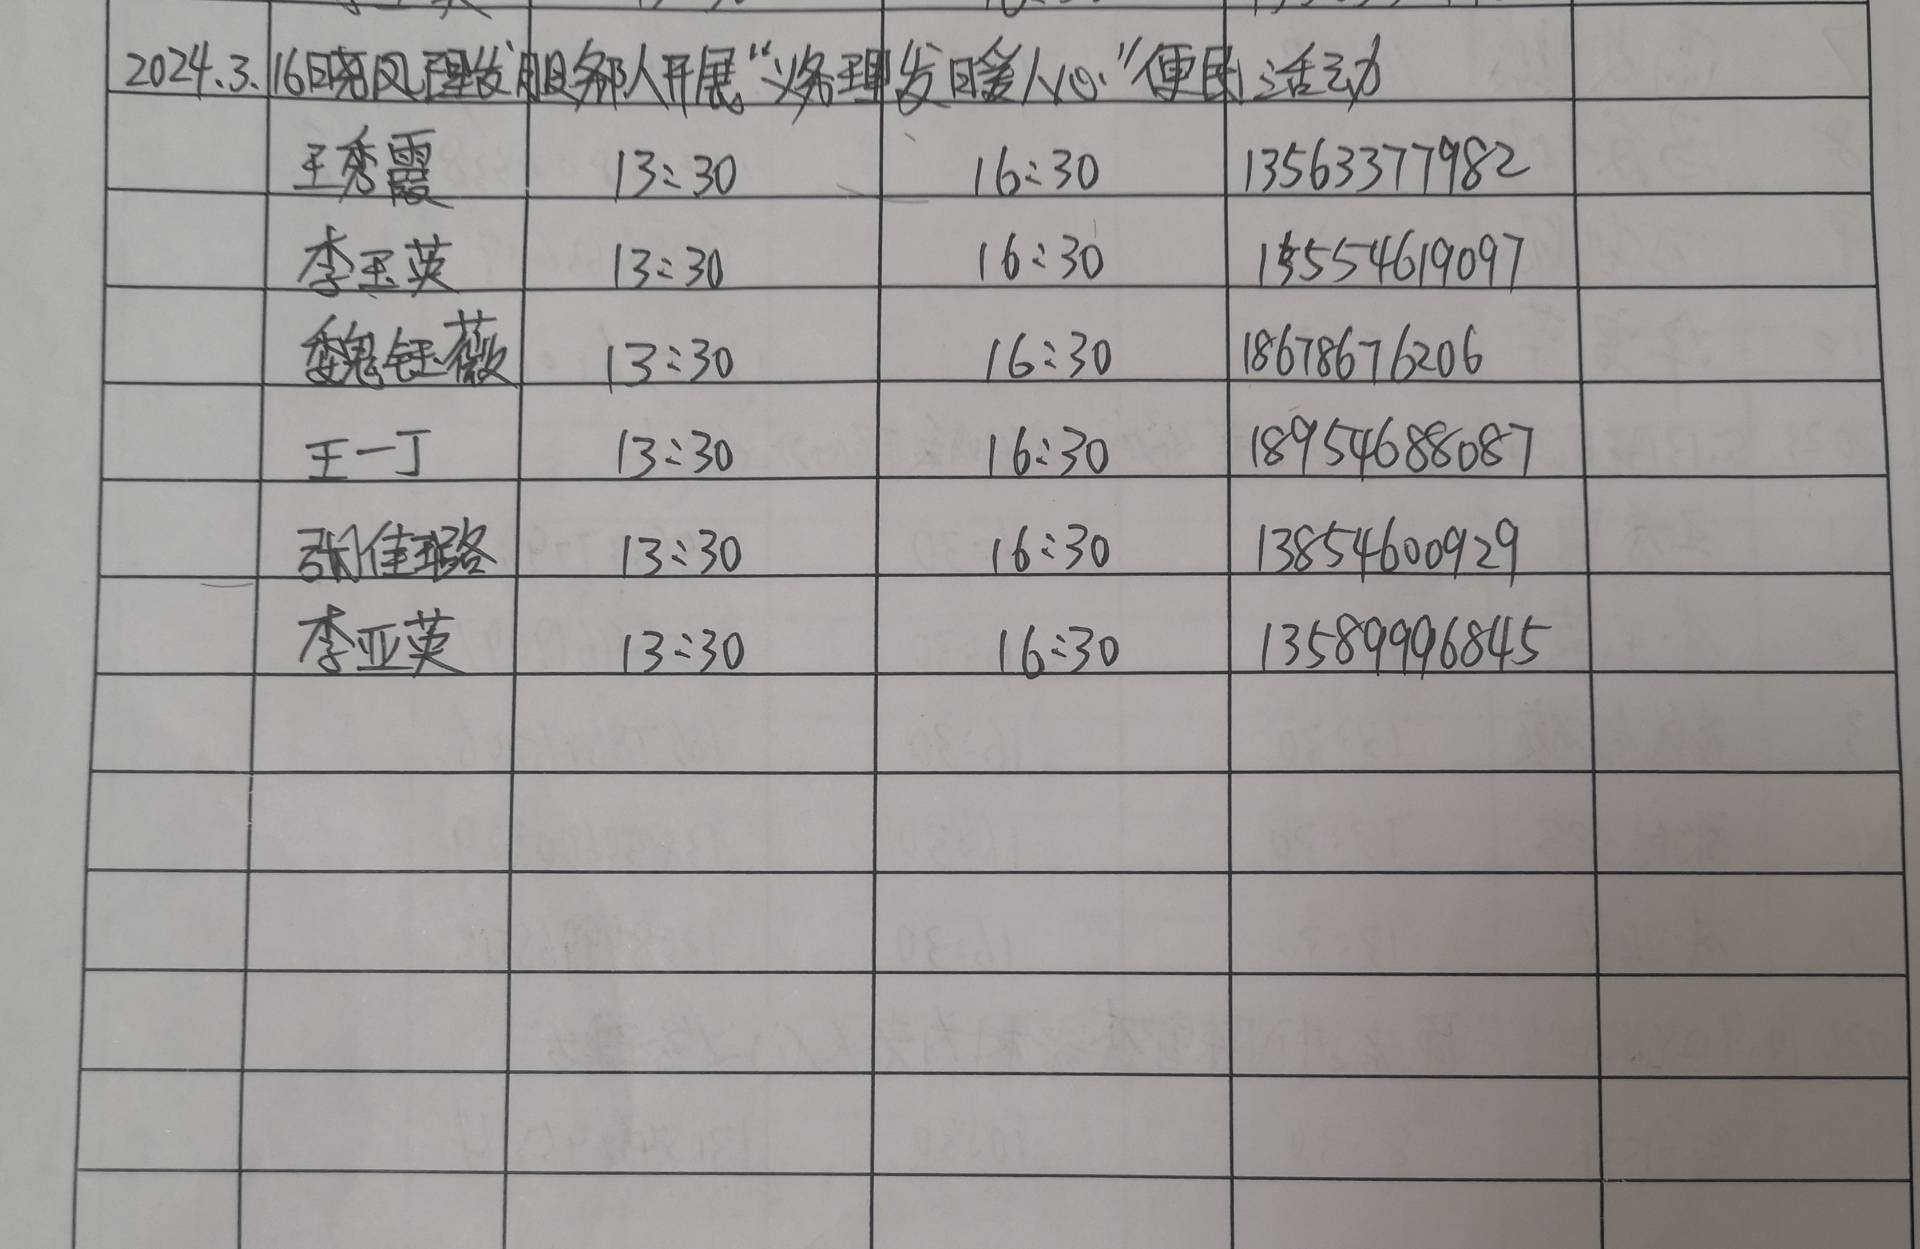 2024.3.16日晓风理发服务部人开展“义务理发暖人心”便民活动
王秀霞 13:30 16:30 13563377982
李玉英 13:30 16:30 15554619097
魏钰薇 13:30 16:30 18678676206
王一丁 13:30 16:30 18954688087
张佳璐 13:30 16:30 13854600929
李亚英 13:30 16:30 13589996845